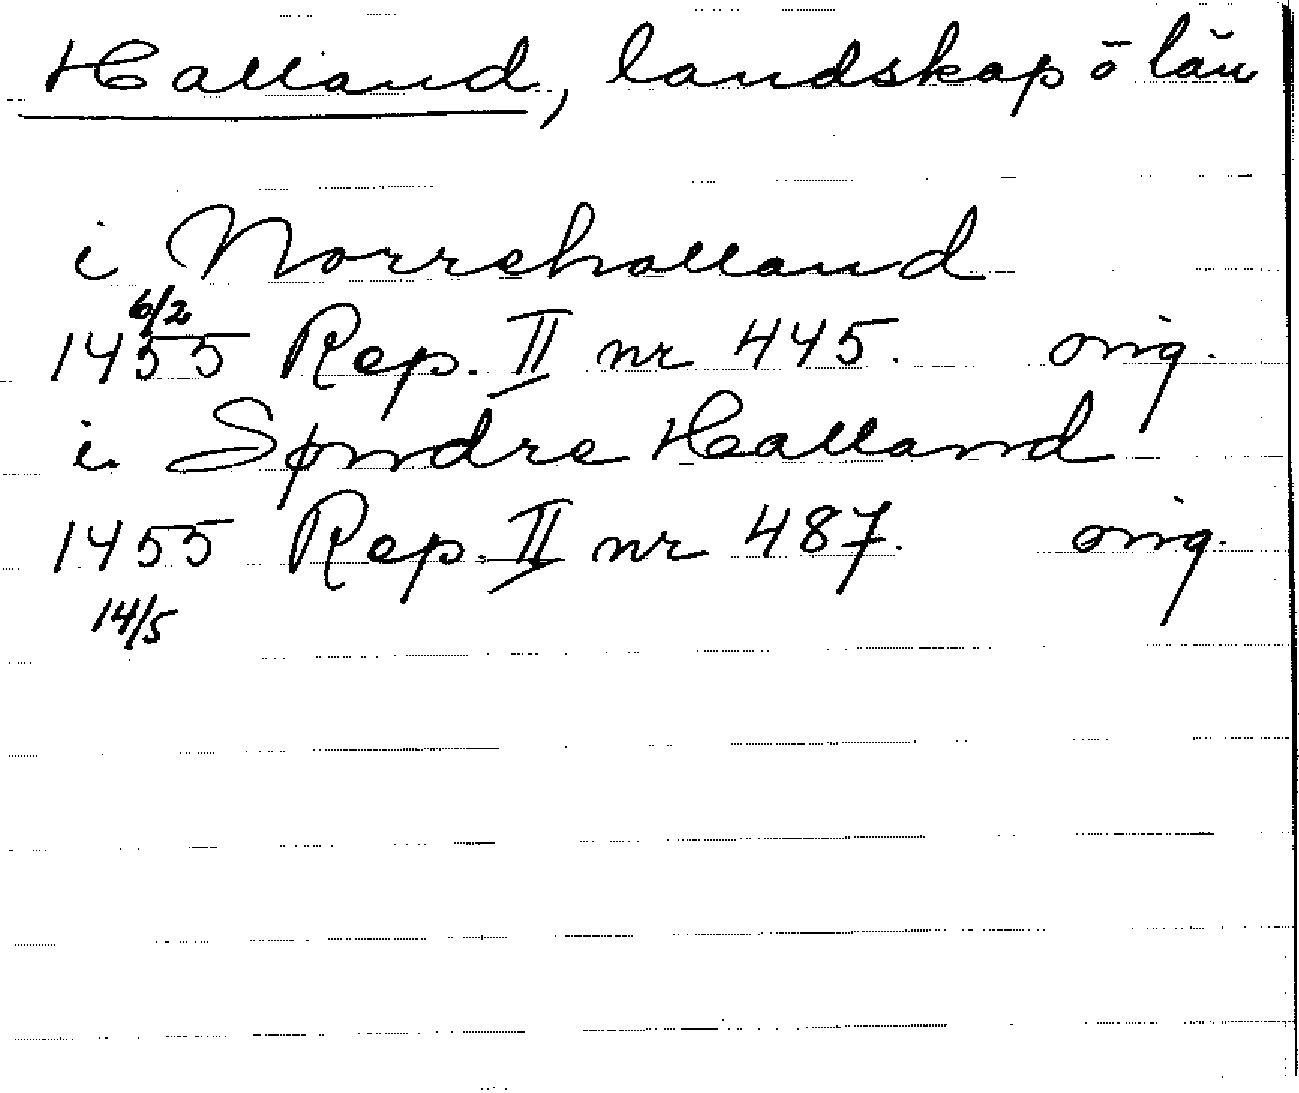 Halland, landskap ō län
i Norrehalland
6/2
1455 Rep. II nr 445. orig.
i Spndre Halland
1455 Rep. II nr 487. orig.
14/5